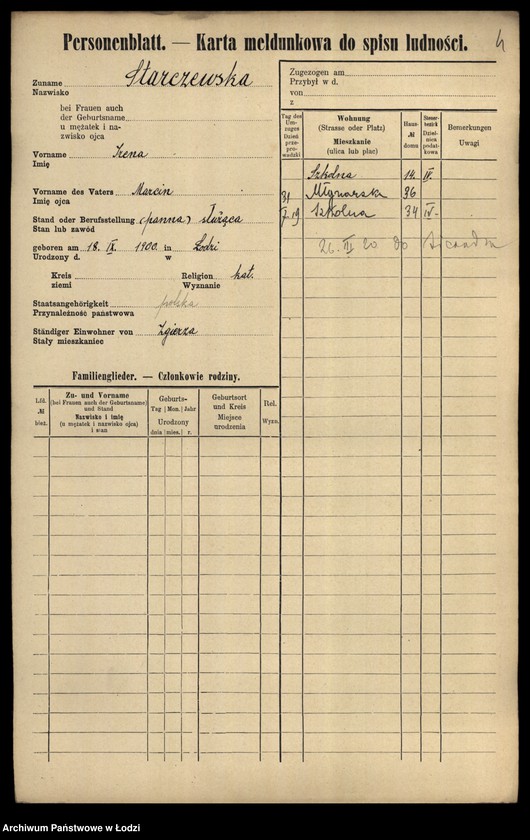 Personenblatt. — Karta meldunkowa do spisu ludności.
Zuname Starczewska
Nazwisko
bei Frauen auch
der Geburtsname
u mężatek i na-
zwisko ojca
Vorname Irena
Imię
Vorname des Vaters Marcin
Imię ojca
Stand oder Berufsstellung (panna) służąca
Stan lub zawód
geboren am 18. IX. 1900. in Łodzi
Urodzony d. w
Kreis Religion kat.
ziemi Wyznanie
Staatsangehörigkeit polska
Przynależność państwowa
Ständiger Einwohner von Zgierza
Stały mieszkaniec
Familienglieder. — Członkowie rodziny.
Lfd.
№
bież.
Zu- und Vorname
(bei Frauen auch der Geburtsname)
und Stand
Nazwisko i imię
(u mężatek i nazwisko ojca)
i stan
Geburts-
Tag Mon. Jahr
Urodzony
dnia mies. r.
Geburtsort
und Kreis
Miejsce
urodzenia
Rel.
Wyzn.
Zugezogen am
Przybył w d.
von
z
Tag des
Um-
zuges
Dzień
prze-
prowadzki
Wohnung
(Strasse oder Platz)
Mieszkanie
(ulica lub plac)
Haus-
№
domu
Steuer-
bezirk
Dziel-
nica
podat-
kowa
Bemerkungen
Uwagi
Szkolna 14 IV.
31 Młynarska 36
19 Szkolna 34 IV-
26. III 20 do
Archiwum Państwowe w Łodzi